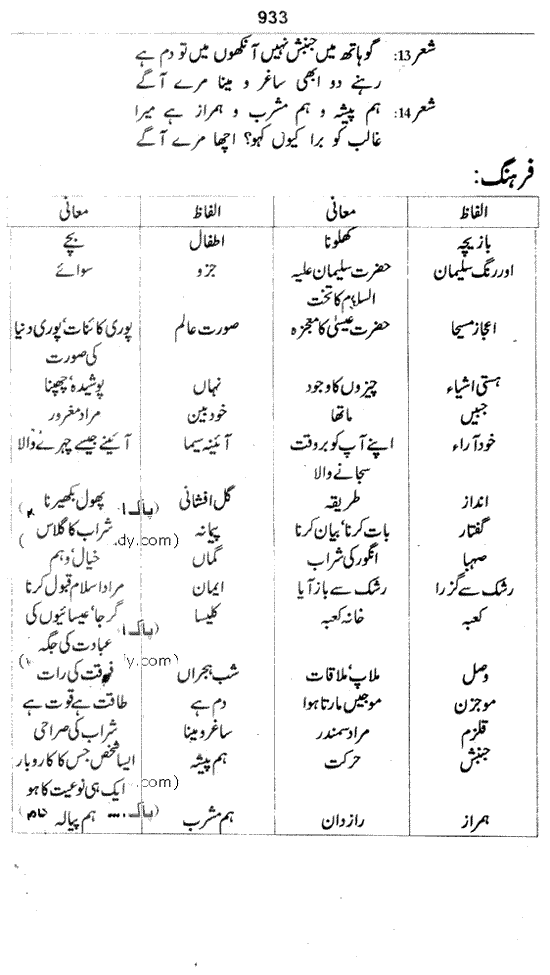 933
شعر13: گو ہاتھ میں جنبش نہیں آنکھوں میں تو دم ہے
رہنے دو ابھی ساغر و مینا مرے آگے
شعر14: ہم پیشہ و ہم مشرب و ہمراز ہے میرا
غالب کو برا کیوں کہو؟ اچھا مرے آگے
فرہنگ:
الفاظ معانی الفاظ معانی
بازیچہ کھلونا اطفال بچے
اورنگ سلیمان حضرت سلیمان علیہ جزو سوائے
السلام کا تخت
اعجاز مسیحا حضرت عیسیٰ کا معجزہ صورت عالم پوری کائنات، پوری دنیا
کی صورت
ہستی اشیاء چیزوں کا وجود نہاں پوشیدہ، چھپنا
جبیں ماتھا خود بین مراد مغرور
خود آراء اپنے آپ کو ہر وقت آئینہ سیما آئینے جیسے چہرے والا
سجانے والا
انداز طریقہ گل افشانی پھول بکھیرنا
گفتار بات کرنا، بیان کرنا پیمانہ شراب کا گلاس
صہبا انگور کی شراب گماں خیال، وہم
رشک سے گزرا رشک سے باز آیا ایمان مراد اسلام قبول کرنا
کعبہ خانہ کعبہ کلیسا گرجا، عیسائیوں کی
عبادت کی جگہ
وصل ملاپ، ملاقات شب ہجراں فرقت کی رات
موجزن موجیں مارتا ہوا دم ہے طاقت ہے قوت ہے
قلزم مراد سمندر ساغر و مینا شراب کی صراحی
جنبش حرکت ہم پیشہ ایسا شخص جس کا کاروبار
ایک ہی نوعیت کا ہو
ہمراز رازدان ہم مشرب ہم پیالہ